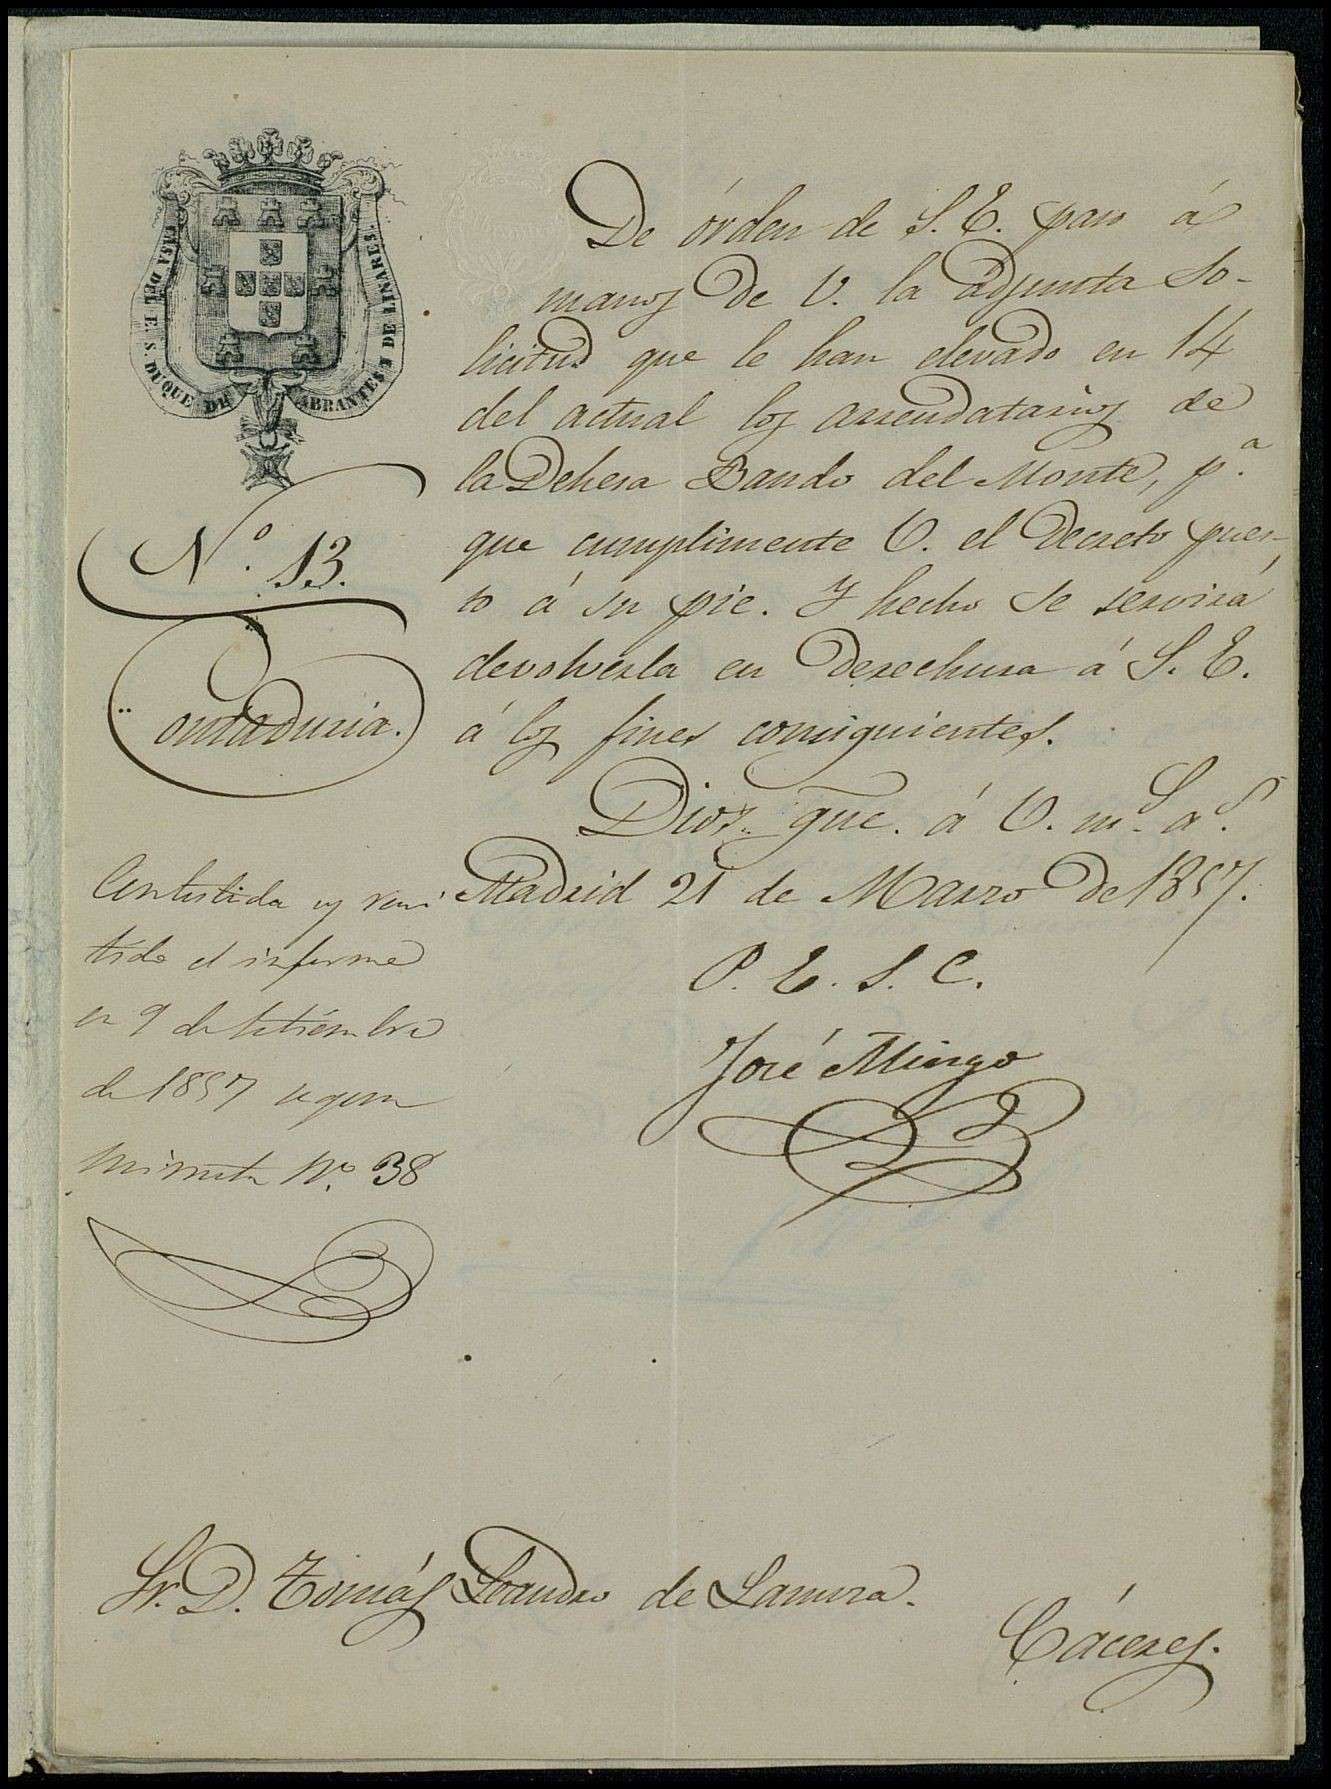 CASA DEL E. S. DUQUE DE ABRANTES Y DE LINARES.
Nº. 13.
Contaduria.
De órden de S. E. paso á
manos de V. la adjunta so-
licitud que le han elevado en 14
del actual los arrendatarios de
la Dehesa Bando del Monte, p.ª
que cumplimente V. el Decreto pues-
to á su pie. Y hecho se servirá
devolverla en derechura á S. E.
á los fines consiguientes.
Dios gue. á V. m.s a.s
Madrid 21 de Marzo de 1857.
P. E. S. C.
José Mingo
Contestida y remi
tido el informe
en 9 de Setiembre
de 1857 segun
minuta Nº. 38
Sr. D. Tomás Leandro de Lamora.
Cáceres.